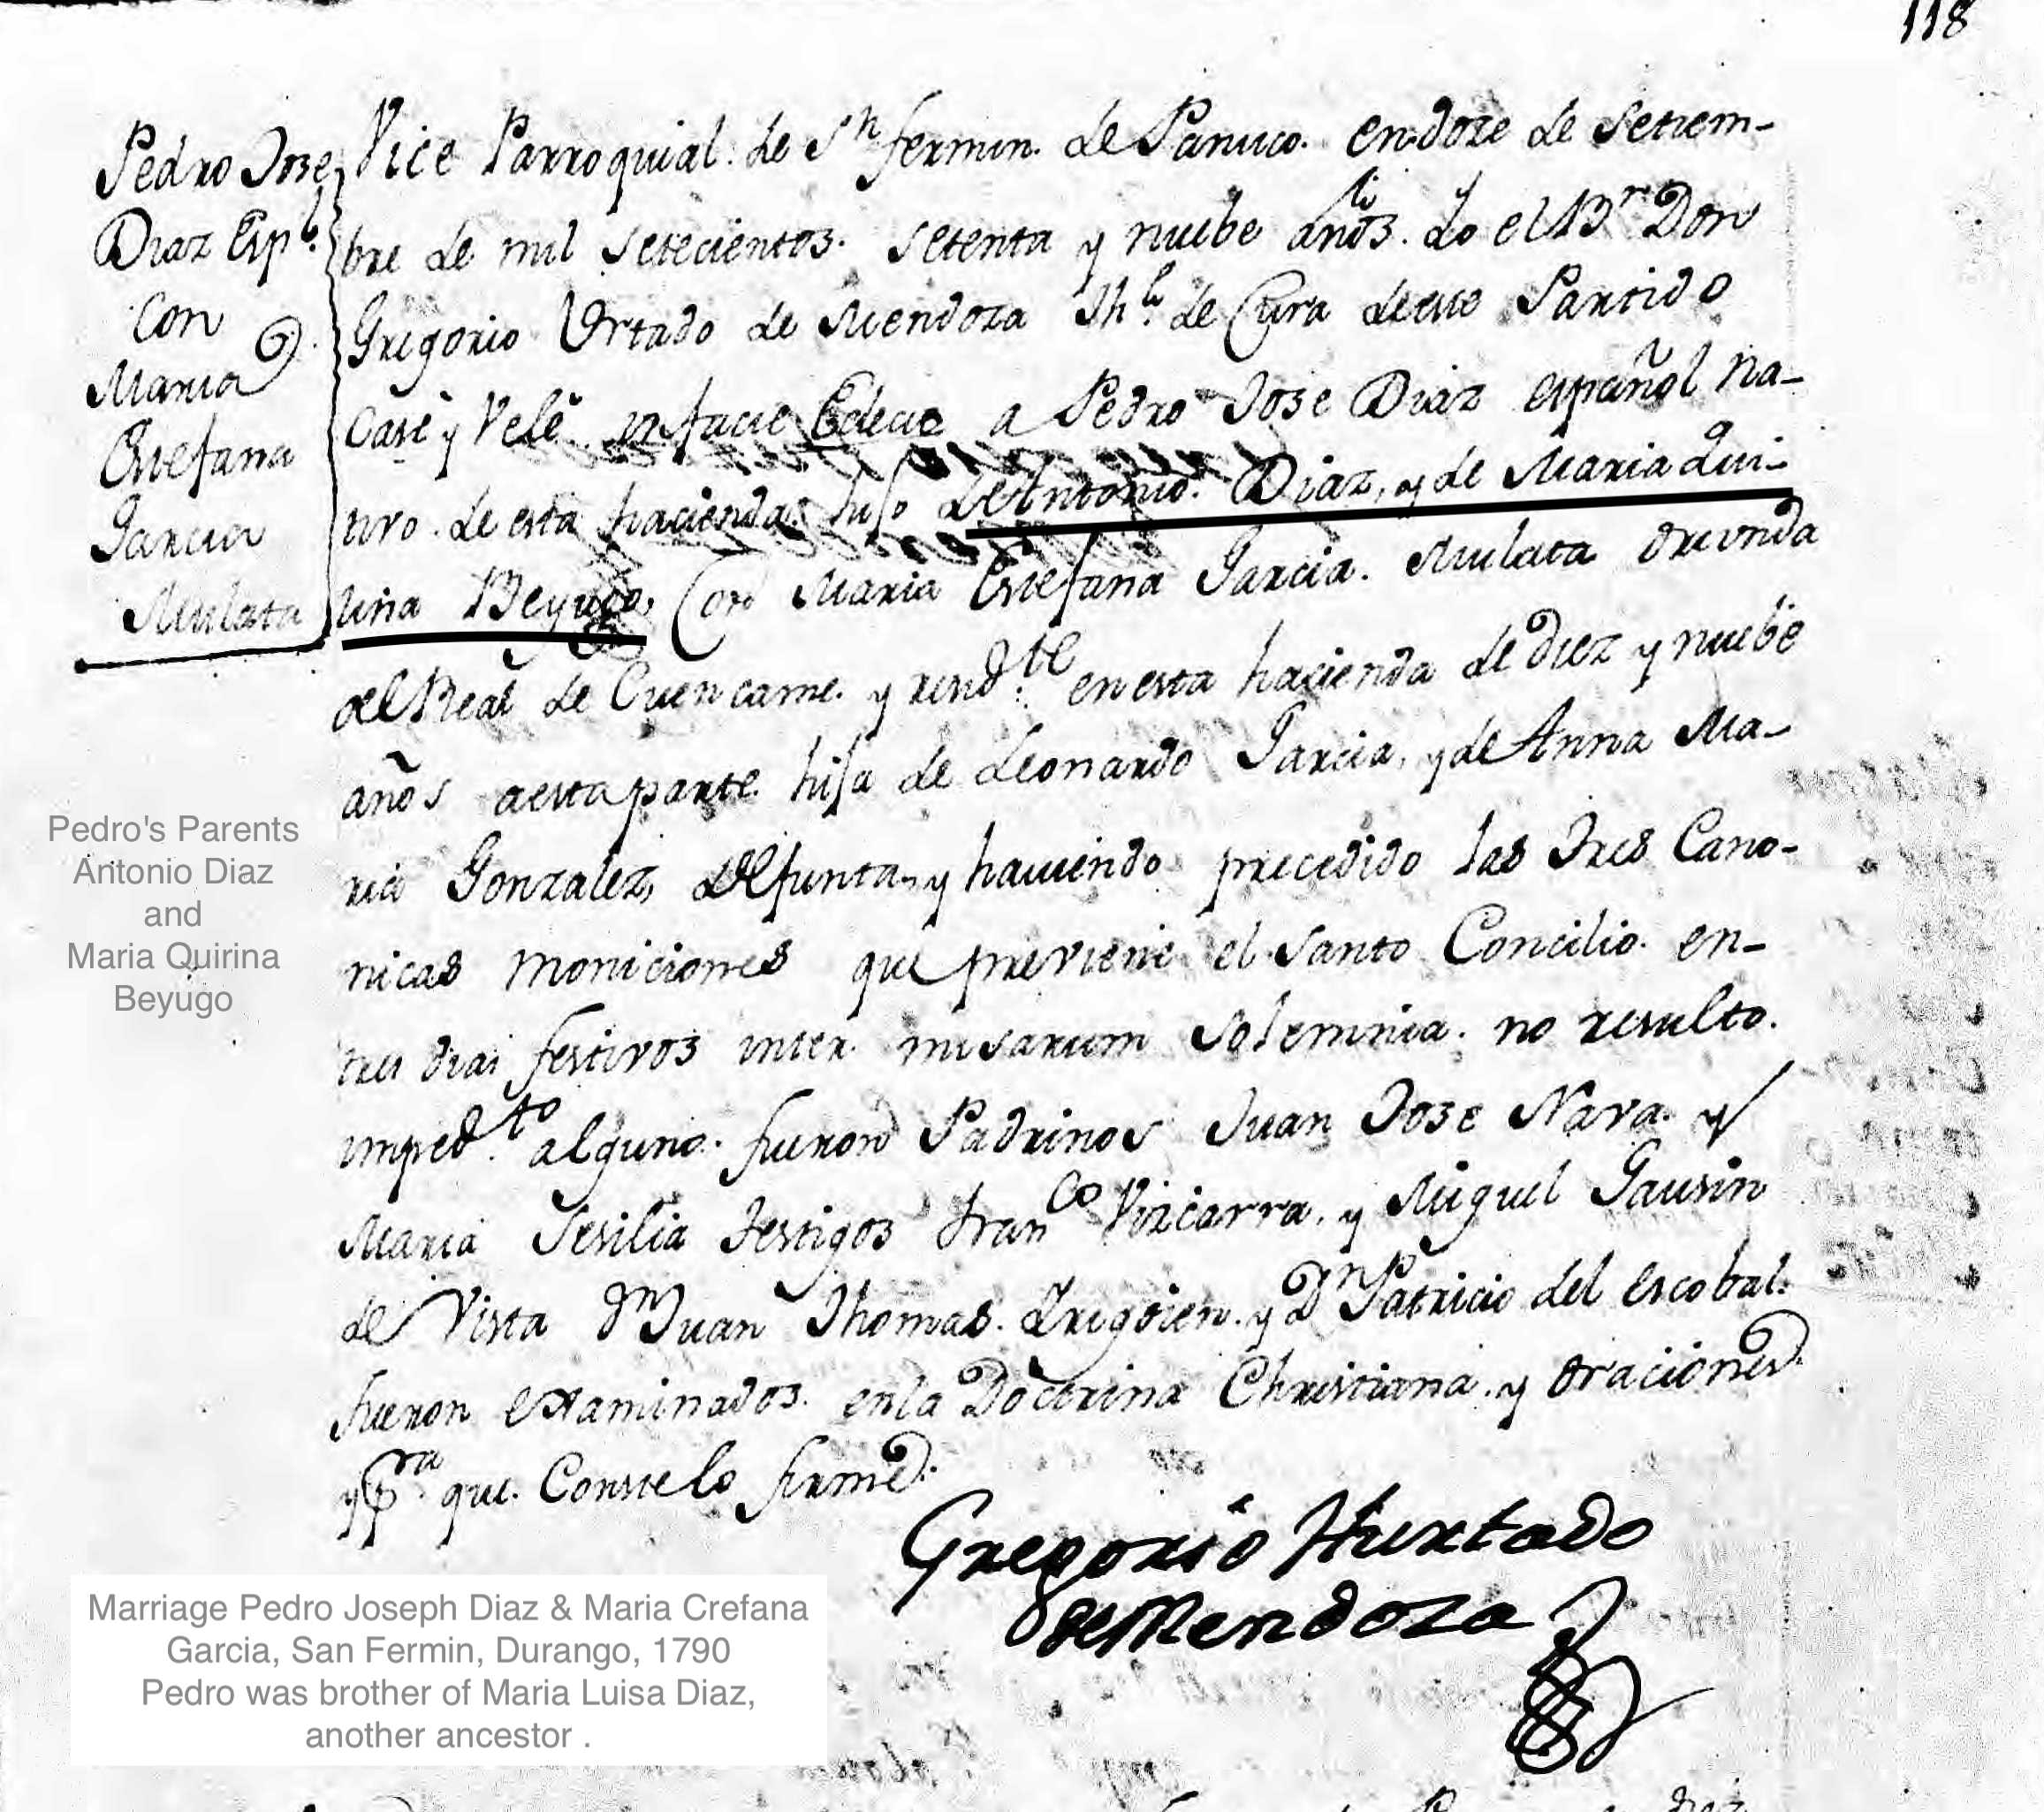 118
Pedro Jose
Diaz Esp.l
Con
Maria
Estefana
Garcia
Mulata
Vice Parroquial. de Sn. fermin. de Panuco. en doze de Setiem-
bre de mil setecientos. setenta y nuebe años. Yo el Br. Don
Gregorio Urtado de Mendoza Th.e de Cura de este Partido
Casé y Velé in facie Eclecie a Pedro Jose Diaz español na-
tivo. de esta hacienda. hijo de Antonio. Diaz, y de Maria Qui-
rina Beyugo, Con Maria Estefana Garcia. Mulata Oriunda
del Real de Cuencame. y resid.te en esta hacienda de diez y nuebe
años a esta parte. hija de Leonardo Garcia, y de Anna Ma-
ria Gonzalez, defunta, y haviendo precedido las Tres Cano-
nicas moniciones que previene el Santo Concilio. en-
tres dias festivos inter. misarum Solemnia. no resulto.
imped.to alguno. fueron Padrinos Juan Jose Nava. y
Maria Sesilia Testigos Fran.co Vizcarra. y Miguel Gausin
de Vista Dn Juan Thomas. Yrigoien. y Dn Patricio del escobal.
fueron examinados. en la Doctrina Christiana. y oraciones.
y p.ra que. Conste lo firme.
Gregorio Hurtado
de Mendoza
Pedro's Parents
Antonio Diaz
and
Maria Quirina
Beyugo
Marriage Pedro Joseph Diaz & Maria Crefana
Garcia, San Fermin, Durango, 1790
Pedro was brother of Maria Luisa Diaz,
another ancestor .